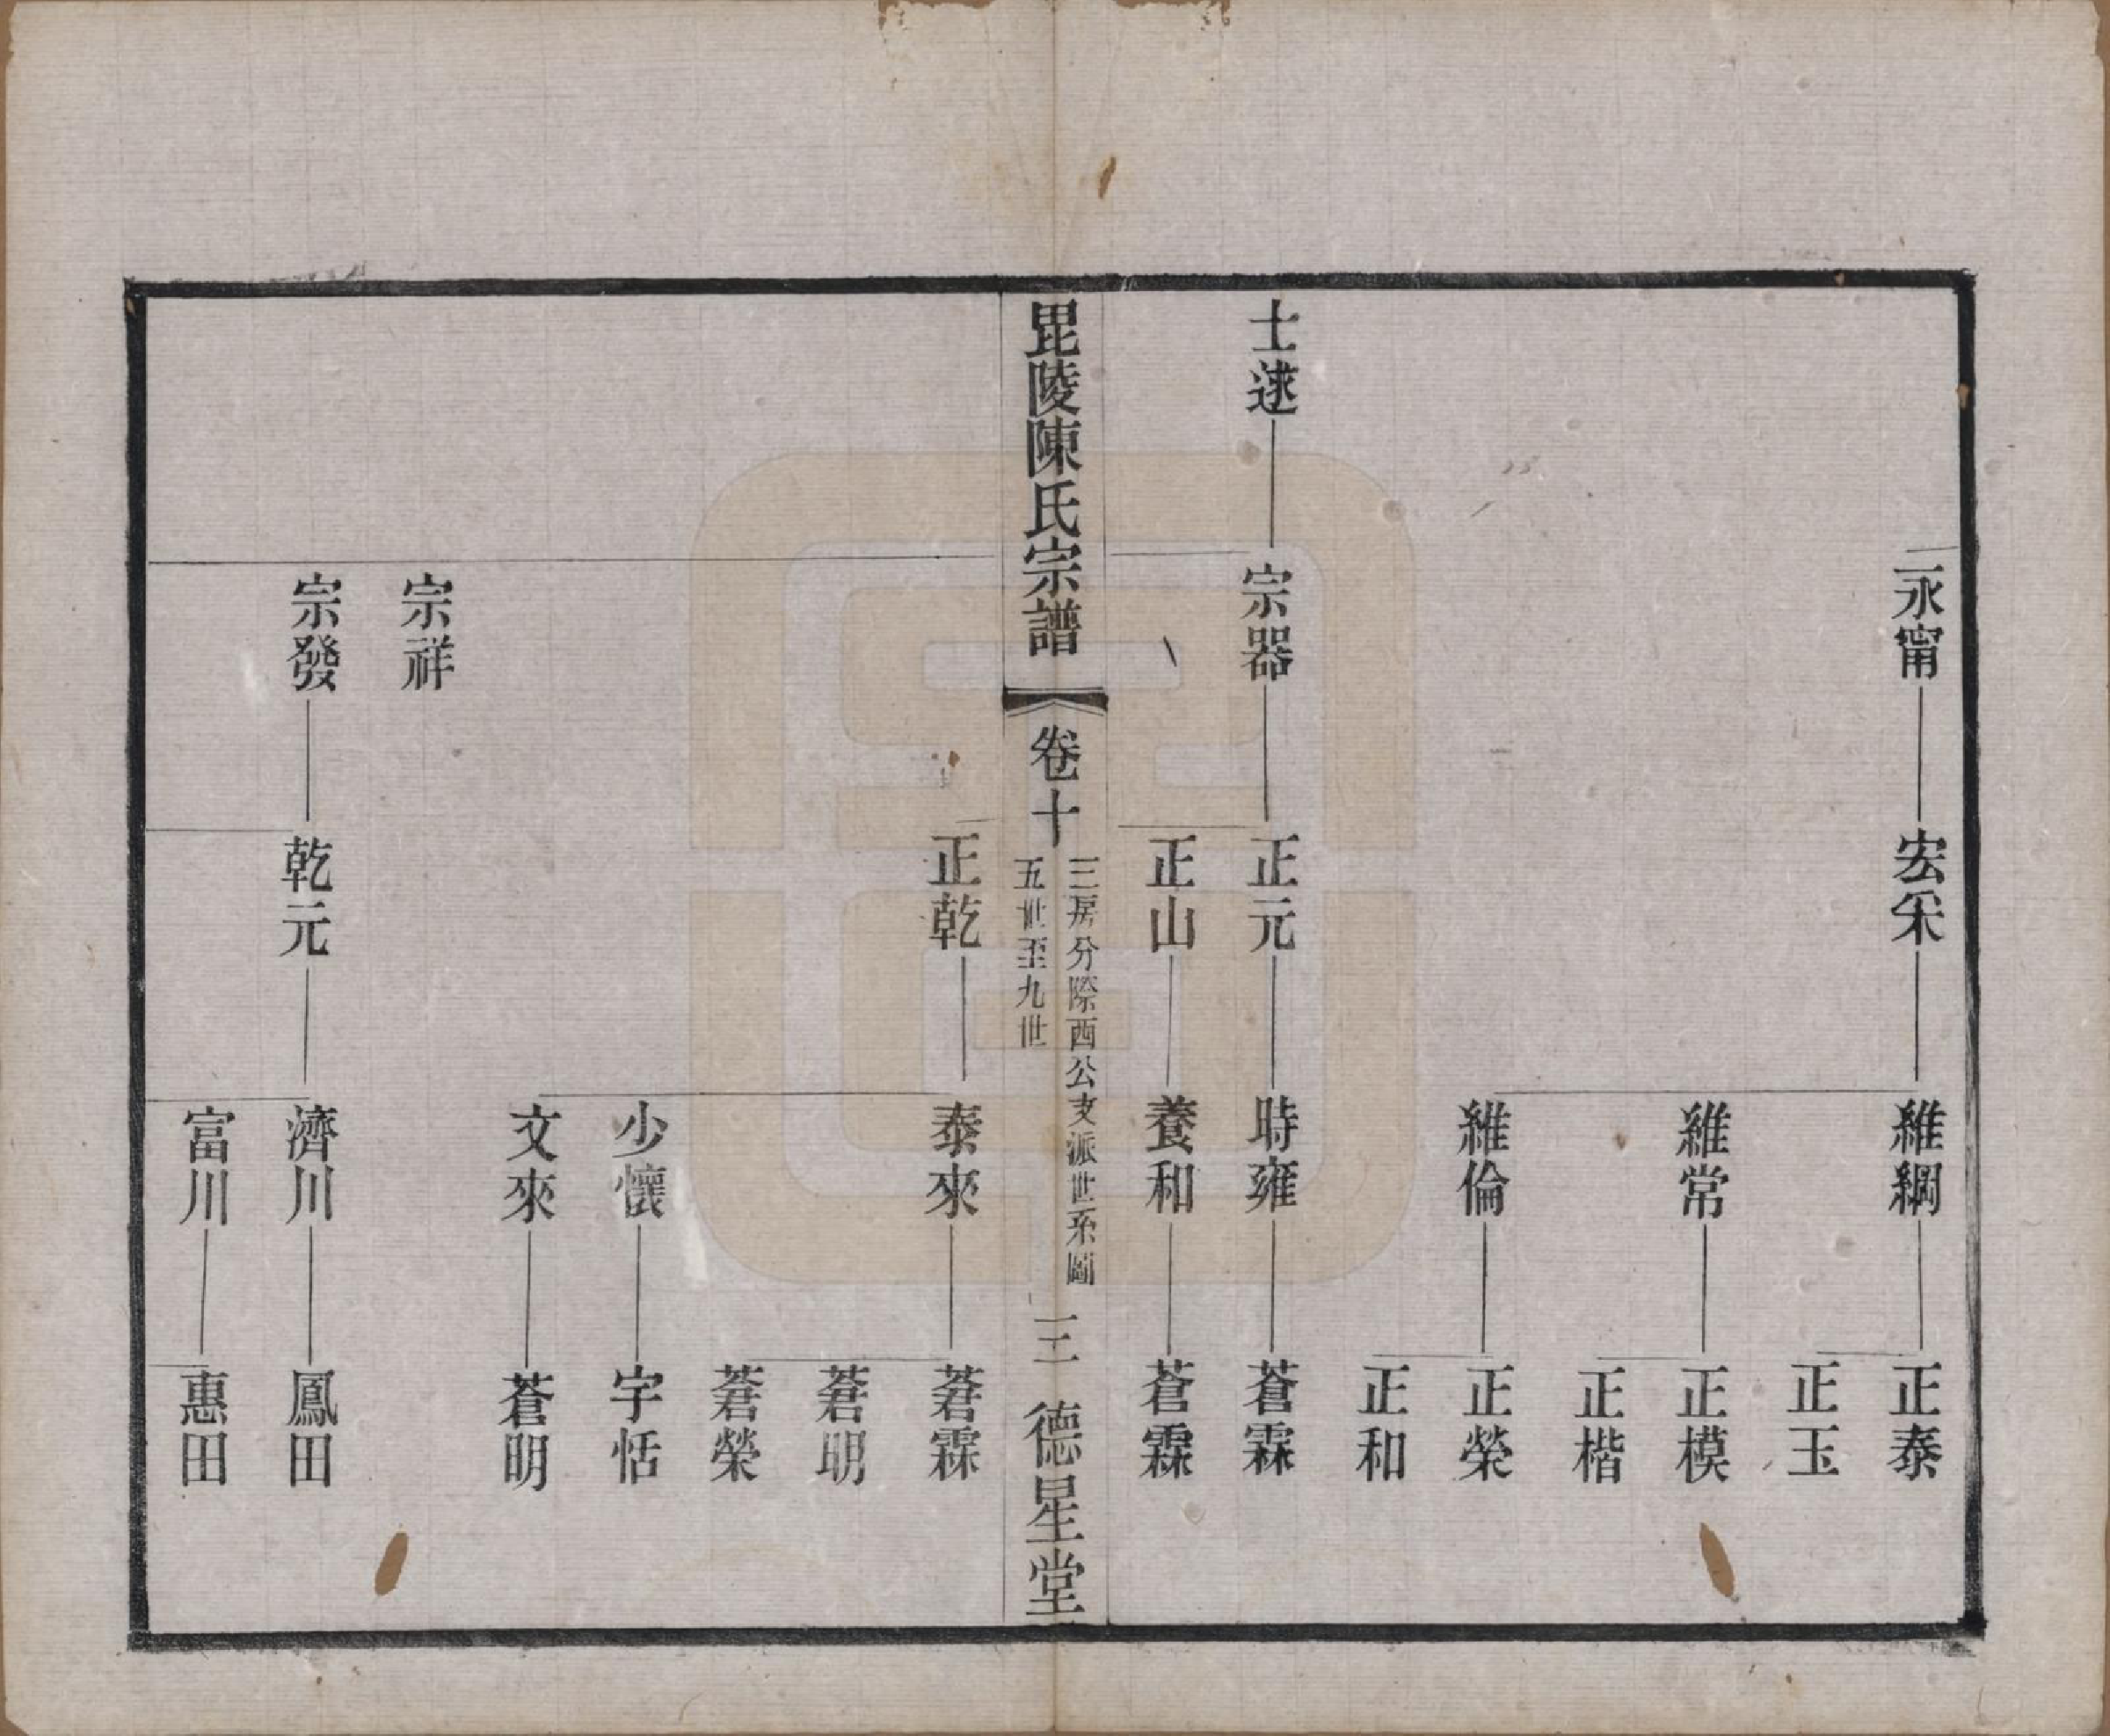 永甯
宏采
維綱
正泰
正玉
維常
正模
正楷
維倫
正榮
正和
士逑
宗器
正元
時雍
蒼霖
正山
養和
蒼霖
毘陵陳氏宗譜
卷十
三房分際西公支派世系圖
五世至九世
三
德星堂
正乾
泰來
蒼霖
蒼明
蒼榮
少懷
宇恬
文來
蒼明
宗祥
宗發
乾元
濟川
鳳田
富川
惠田